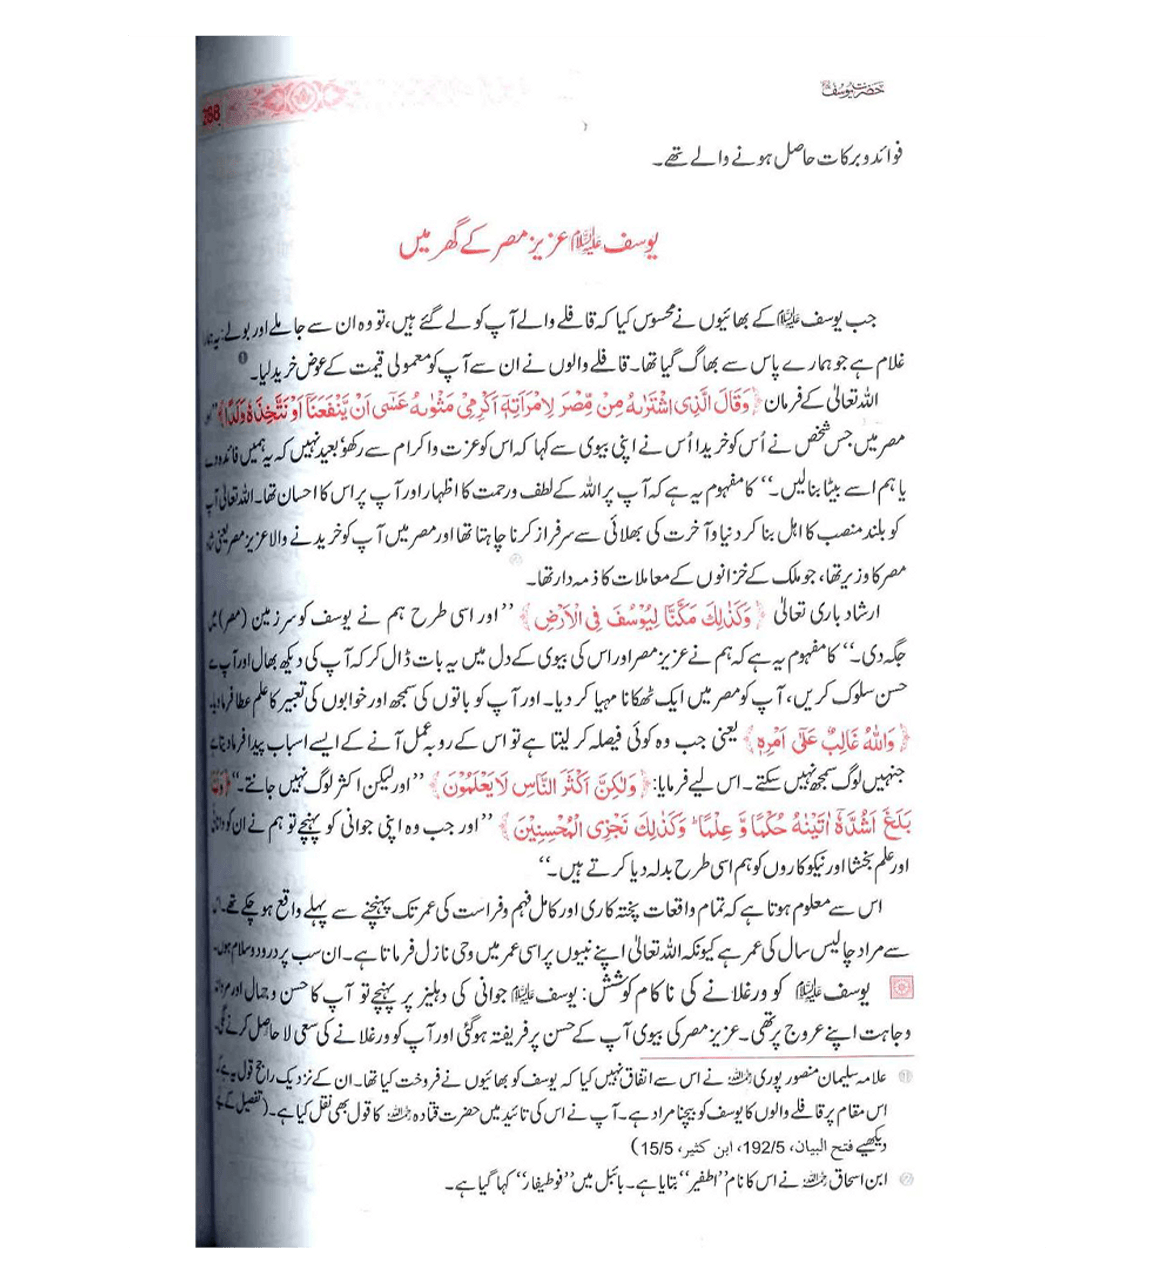 حضرت یوسف
288
فوائد و برکات حاصل ہونے والے تھے۔
یوسف علیہ السلام عزیز مصر کے گھر میں
جب یوسف علیہ السلام کے بھائیوں نے محسوس کیا کہ قافلے والے آپ کو لے گئے ہیں، تو وہ ان سے جا ملے اور بولے: یہ
غلام ہے جو ہمارے پاس سے بھاگ گیا تھا۔ قافلے والوں نے ان سے آپ کو معمولی قیمت کے عوض خرید لیا۔
اللہ تعالیٰ کے فرمان ﴿وَقَالَ الَّذِی اشْتَرٰىهُ مِنْ مِّصْرَ لِامْرَاَتِهٖۤ اَكْرِمِیْ مَثْوٰىهُ عَسٰۤی اَنْ یَّنْفَعَنَاۤ اَوْ نَتَّخِذَهٗ وَلَدًا﴾
مصر میں جس شخص نے اُس کو خریدا اُس نے اپنی بیوی سے کہا کہ اس کو عزت و اکرام سے رکھو بعید نہیں کہ یہ ہمیں فائدہ دے
یا ہم اسے بیٹا بنا لیں۔‘‘ کا مفہوم یہ ہے کہ آپ پر اللہ کے لطف و رحمت کا اظہار اور آپ پر اس کا احسان تھا۔ اللہ تعالیٰ آپ
کو بلند منصب کا اہل بنا کر دنیا و آخرت کی بھلائی سے سرفراز کرنا چاہتا تھا اور مصر میں آپ کو خریدنے والا عزیز مصر یعنی
مصر کا وزیر تھا، جو ملک کے خزانوں کے معاملات کا ذمہ دار تھا۔
ارشاد باری تعالیٰ ﴿وَكَذٰلِكَ مَكَّنَّا لِیُوْسُفَ فِی الْاَرْضِ﴾ ’’اور اسی طرح ہم نے یوسف کو سرزمین (مصر) میں
جگہ دی۔‘‘ کا مفہوم یہ ہے کہ ہم نے عزیز مصر اور اس کی بیوی کے دل میں یہ بات ڈال کر کہ آپ کی دیکھ بھال اور آپ سے
حسن سلوک کریں، آپ کو مصر میں ایک ٹھکانا مہیا کر دیا۔ اور آپ کو باتوں کی سمجھ اور خوابوں کی تعبیر کا علم عطا فرما دیا۔
﴿وَاللّٰهُ غَالِبٌ عَلٰۤی اَمْرِهٖ﴾ یعنی جب وہ کوئی فیصلہ کر لیتا ہے تو اس کے روبہ عمل آنے کے ایسے اسباب پیدا فرما دیتا ہے
جنہیں لوگ سمجھ نہیں سکتے۔ اس لیے فرمایا: ﴿وَلٰكِنَّ اَكْثَرَ النَّاسِ لَا یَعْلَمُوْنَ﴾ ’’اور لیکن اکثر لوگ نہیں جانتے۔‘‘ ﴿وَلَمَّا
بَلَغَ اَشُدَّهٗۤ اٰتَیْنٰهُ حُكْمًا وَّ عِلْمًا ؕ وَكَذٰلِكَ نَجْزِی الْمُحْسِنِیْنَ﴾ ’’اور جب وہ اپنی جوانی کو پہنچے تو ہم نے ان کو دانائی
اور علم بخشا اور نیکو کاروں کو ہم اسی طرح بدلہ دیا کرتے ہیں۔‘‘
اس سے معلوم ہوتا ہے کہ تمام واقعات پختہ کاری اور کامل فہم و فراست کی عمر تک پہنچنے سے پہلے واقع ہو چکے تھے۔ اس
سے مراد چالیس سال کی عمر ہے کیونکہ اللہ تعالیٰ اپنے نبیوں پر اسی عمر میں وحی نازل فرماتا ہے۔ ان سب پر درود و سلام ہوں۔
یوسف علیہ السلام کو ورغلانے کی ناکام کوشش: یوسف علیہ السلام جوانی کی دہلیز پر پہنچے تو آپ کا حسن و جمال اور مردانہ
وجاہت اپنے عروج پر تھی۔ عزیز مصر کی بیوی آپ کے حسن پر فریفتہ ہو گئی اور آپ کو ورغلانے کی سعی لا حاصل کرنے لگی
① علامہ سلیمان منصور پوری رحمہ اللہ نے اس سے اتفاق نہیں کیا کہ یوسف کو بھائیوں نے فروخت کیا تھا۔ ان کے نزدیک راجح قول یہ ہے کہ
اس مقام پر قافلے والوں کا یوسف کو بیچنا مراد ہے۔ آپ نے اس کی تائید میں حضرت قتادہ رحمہ اللہ کا قول بھی نقل کیا ہے۔ (تفصیل کے لیے
دیکھیے فتح البیان، 192/5، ابن کثیر، 15/5)
② ابن اسحاق رحمہ اللہ نے اس کا نام ’’اطفیر‘‘ بتایا ہے۔ بائبل میں ’’فوطیفار‘‘ کہا گیا ہے۔